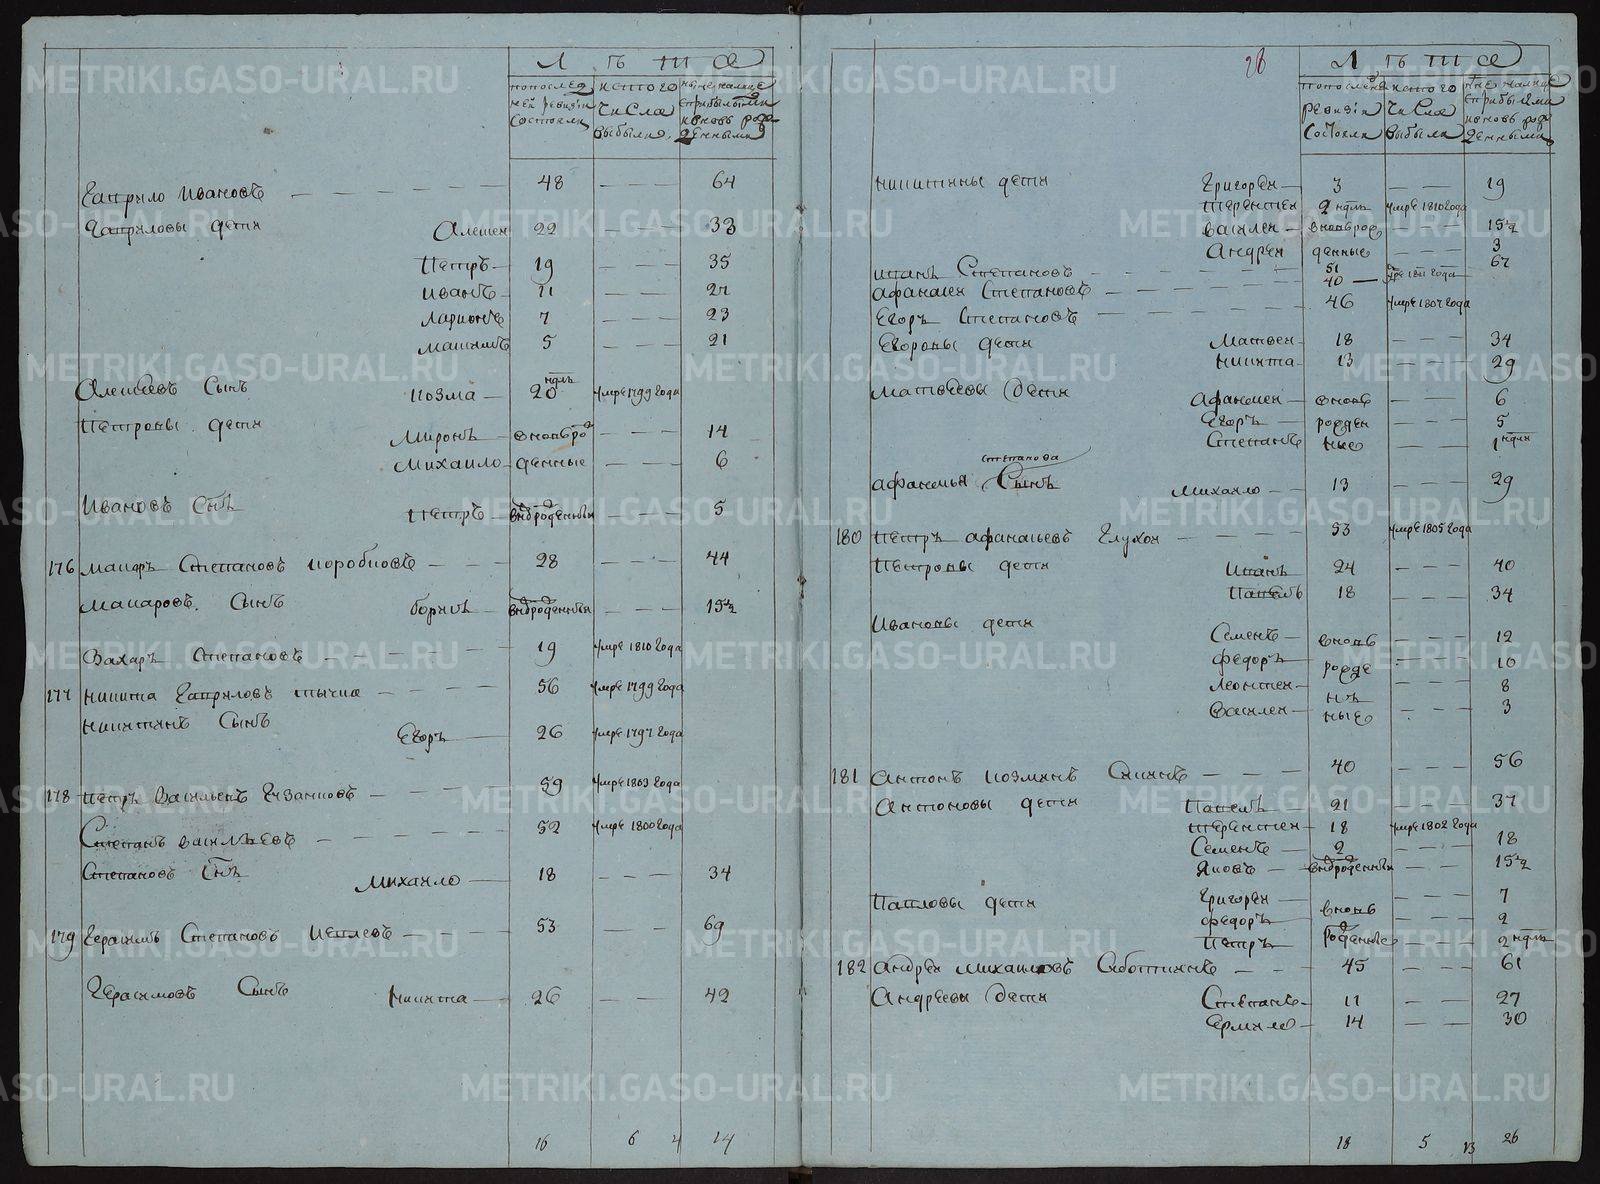 Лѣта
по последней ревизiи состояли
ис того числа выбыли
ныне налице с прибылыми и вновь рожденными
Гаврило Ивановъ — 48 — 64
Гавриловы дети Алексеи 22 — 38
Петръ 19 — 35
Иванъ 11 — 27
Ларионъ 7 — 23
Максимъ 5 — 21
Алексеевъ Сынъ Козма 20 ндлъ умре 1799 года
Петровы дети
Миронъ вновь ро — 14
Михаило жденные — 6
Ивановъ Снъ Петръ внврожденныи — 5
176 Макаръ Степановъ Коробковъ — 28 — 44
Макаровъ Сынъ Борисъ внврожденныи — 15 1/2
Захаръ Степановъ — 19 умре 1810 года
177 Никита Гавриловъ — 56 умре 1799 года
Никитинъ Сынъ
Егоръ 26 умре 1797 года
178 Петръ Васильевъ — 59 умре 1803 года
Степанъ Васильевъ — 52 умре 1800 года
Степановъ Снъ Михаило — 18 — 34
179 Герасимъ Степановъ — 53 — 69
Герасимовъ Сынъ Никита 26 — 42
16 6 4 14
28
Лѣта
по последней ревизiи состояли
ис того числа выбыли
ныне налице с прибылыми и вновь рожденными
Никитины дети Григореи 3 — 19
Терентеи 2 ндлъ умре 1810 года
Василеи вновьрож — 15 1/2
Андреи денные — 3
Иванъ Степановъ — 51 — 67
Афанасеи Степановъ — 40 — умре 1811 года
Егоръ Степановъ — 46 умре 1807 года
Егоровы дети Матвеи 18 — 34
Никита 13 — 29
Матвеевы дети Афанасеи вновь — 6
Егоръ рожден — 5
Степанъ ные — 1 ндли
степанова
Афанасья Сынъ Михаило 13 — 29
180 Петръ Афанасьевъ Глухои — 53 умре 1805 года
Петровы дети Иванъ 24 — 40
Павелъ 18 — 34
Ивановы дети
Семенъ вновь — 12
Федоръ рожде — 10
Леонтеи нъ — 8
Василеи ные — 3
181 Антонъ Козминъ — 40 — 56
Антоновы дети Павелъ 21 — 37
Терентеи 18 умре 1802 года
Семенъ 2 — 18
Яковъ внврожденныи — 15 1/2
Павловы дети Григореи — 7
Федоръ вновь — 2
Петръ рожденные — 2 ндлъ
182 Андреи Михаиловъ Суботинъ — 45 — 61
Андреевы дети Степанъ 11 — 27
Ермило 14 — 30
18 5 13 26
METRIKI.GASO-URAL.RU